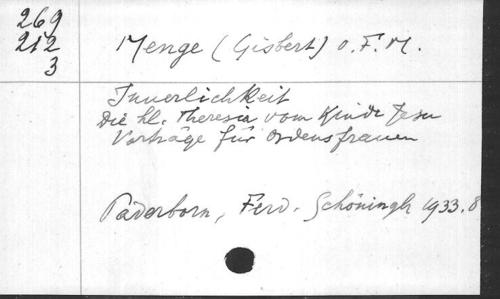 269
212
3
Menge (Gisbert) O.F.M.
Innerlichkeit
Die hl. Theresia vom Kinde Jesu
Vorträge für Ordensfrauen
Paderborn, Ferd. Schöningh 1933. 8